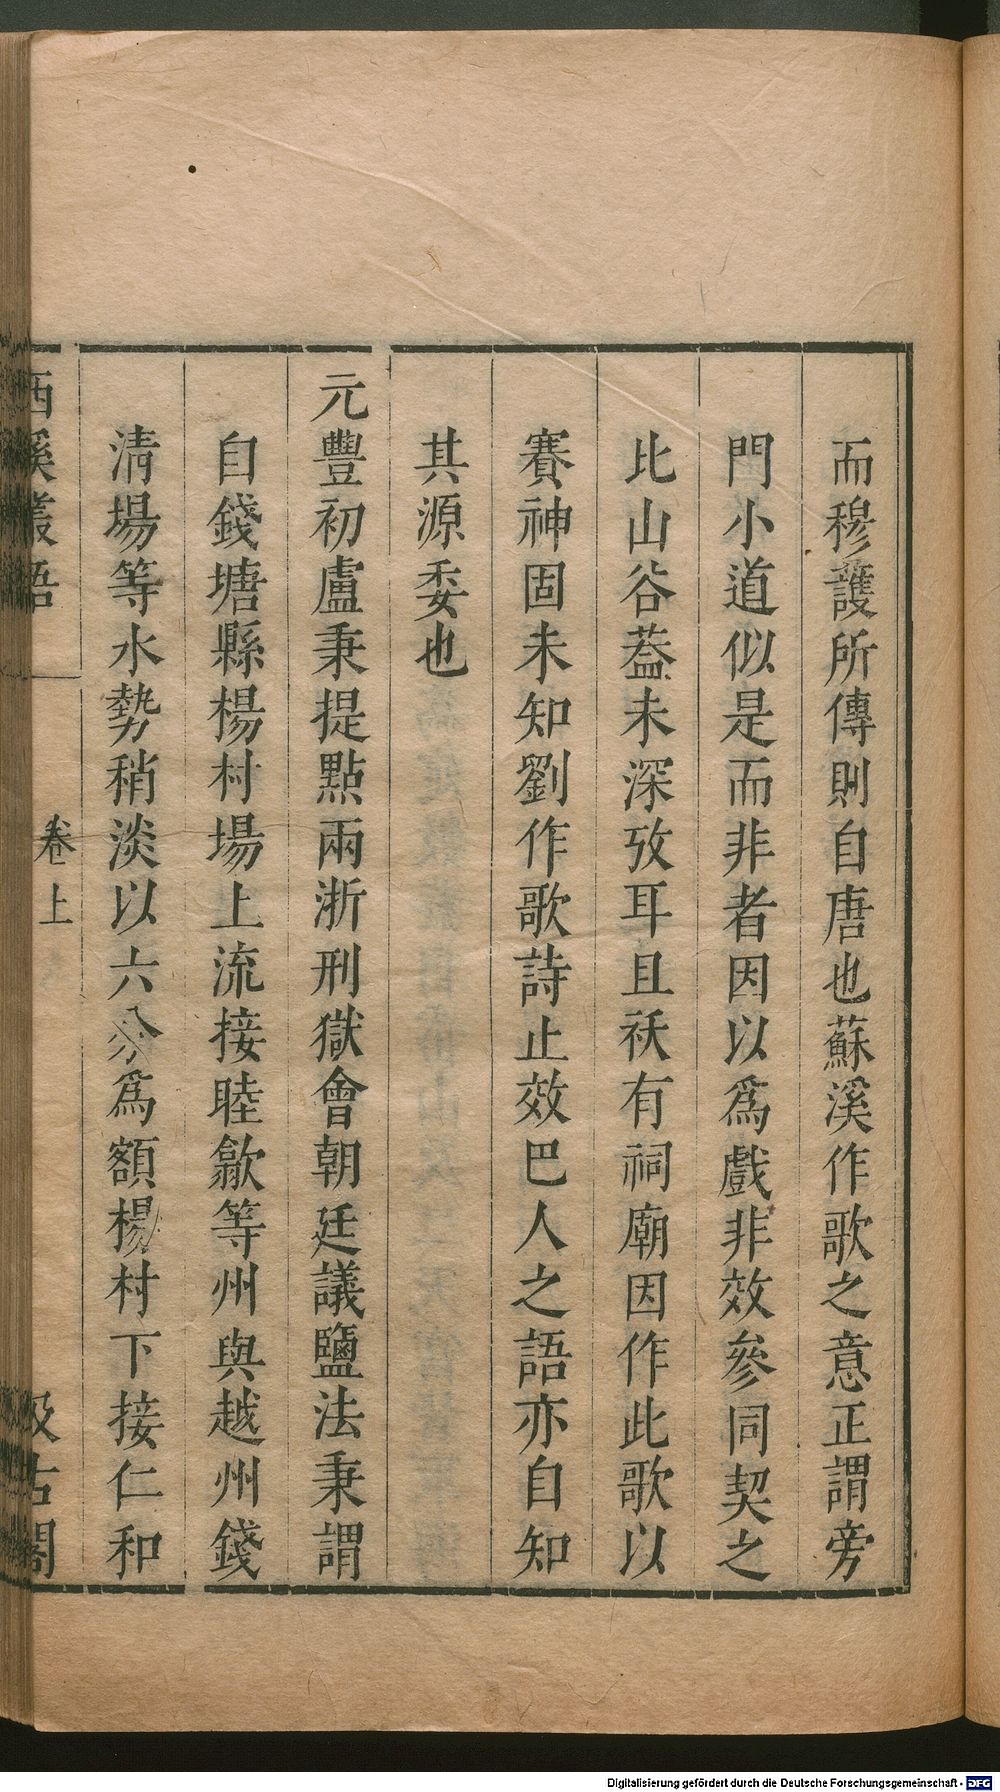 而穆護所傳則自唐也蘇溪作歌之意正謂旁
門小道似是而非者因以爲戲非效參同契之
比山谷葢未深攷耳且祆有祠廟因作此歌以
賽神固未知劉作歌詩止效巴人之語亦自知
其源委也
元豐初盧秉提點兩浙刑獄會朝廷議鹽法秉謂
自錢塘縣楊村場上流接睦歙等州與越州錢
清場等水勢稍淡以六分爲額楊村下接仁和
西溪叢語
卷上
汲古閣
Digitalisierung gefördert durch die Deutsche Forschungsgemeinschaft - DFG